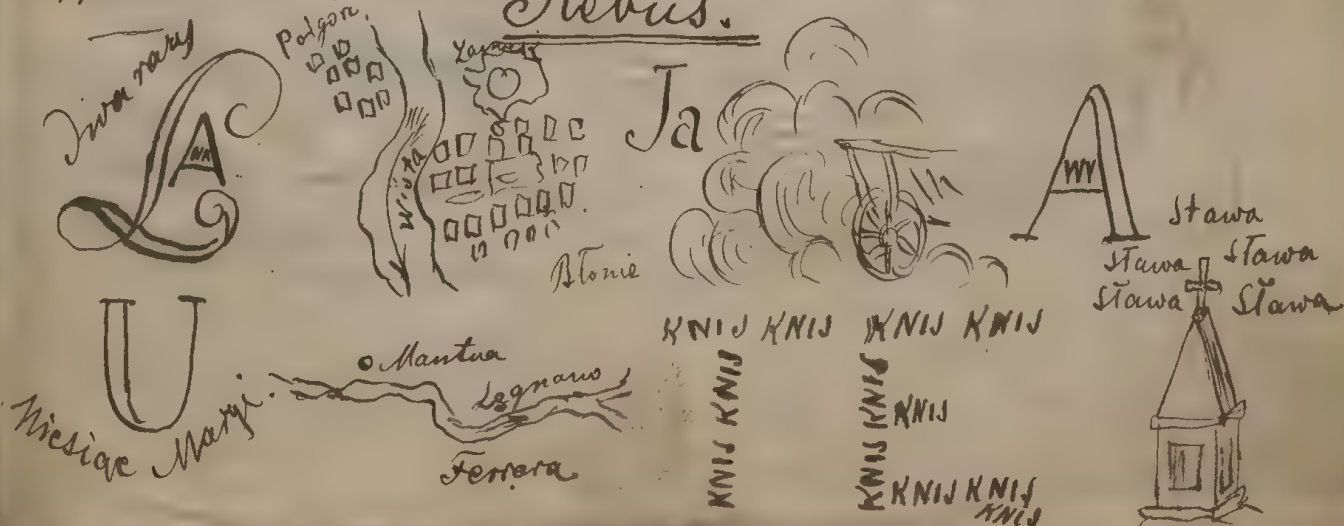 Rebus.
Podgórz.
Wisła
Błonie
Ja
A
W
Sława
Sława
Sława
Sława
Sława
Ł
A
U
Miesiąc Maryi.
Mantua
Legnano
Ferrera
KNIJ KNIJ KNIJ KNIJ
KNIJ KNIJ
KNIJ KNIJ
KNIJ
KNIJ KNIJ KNIJ
KNIJ